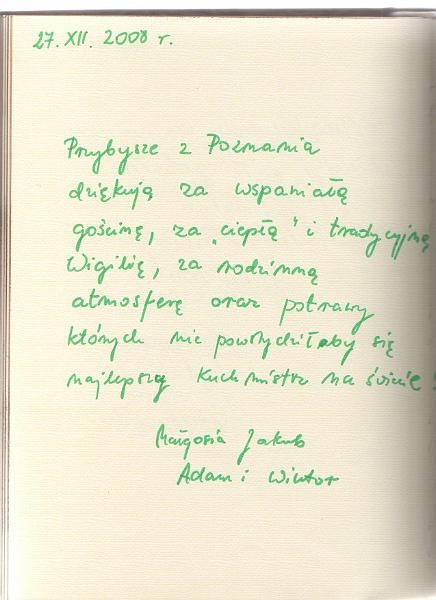 27. XII. 2008 r.
Przybysze z Poznania
dziękują za wspaniałą
gościnę, za „ciepłą" i tradycyjną
Wigilię, za rodzinną
atmosferę oraz potrawy
których nie powstydziłaby się
najlepszy kuchmistrz na świecie!
Małgosia Jakub
Adam i Wiktor